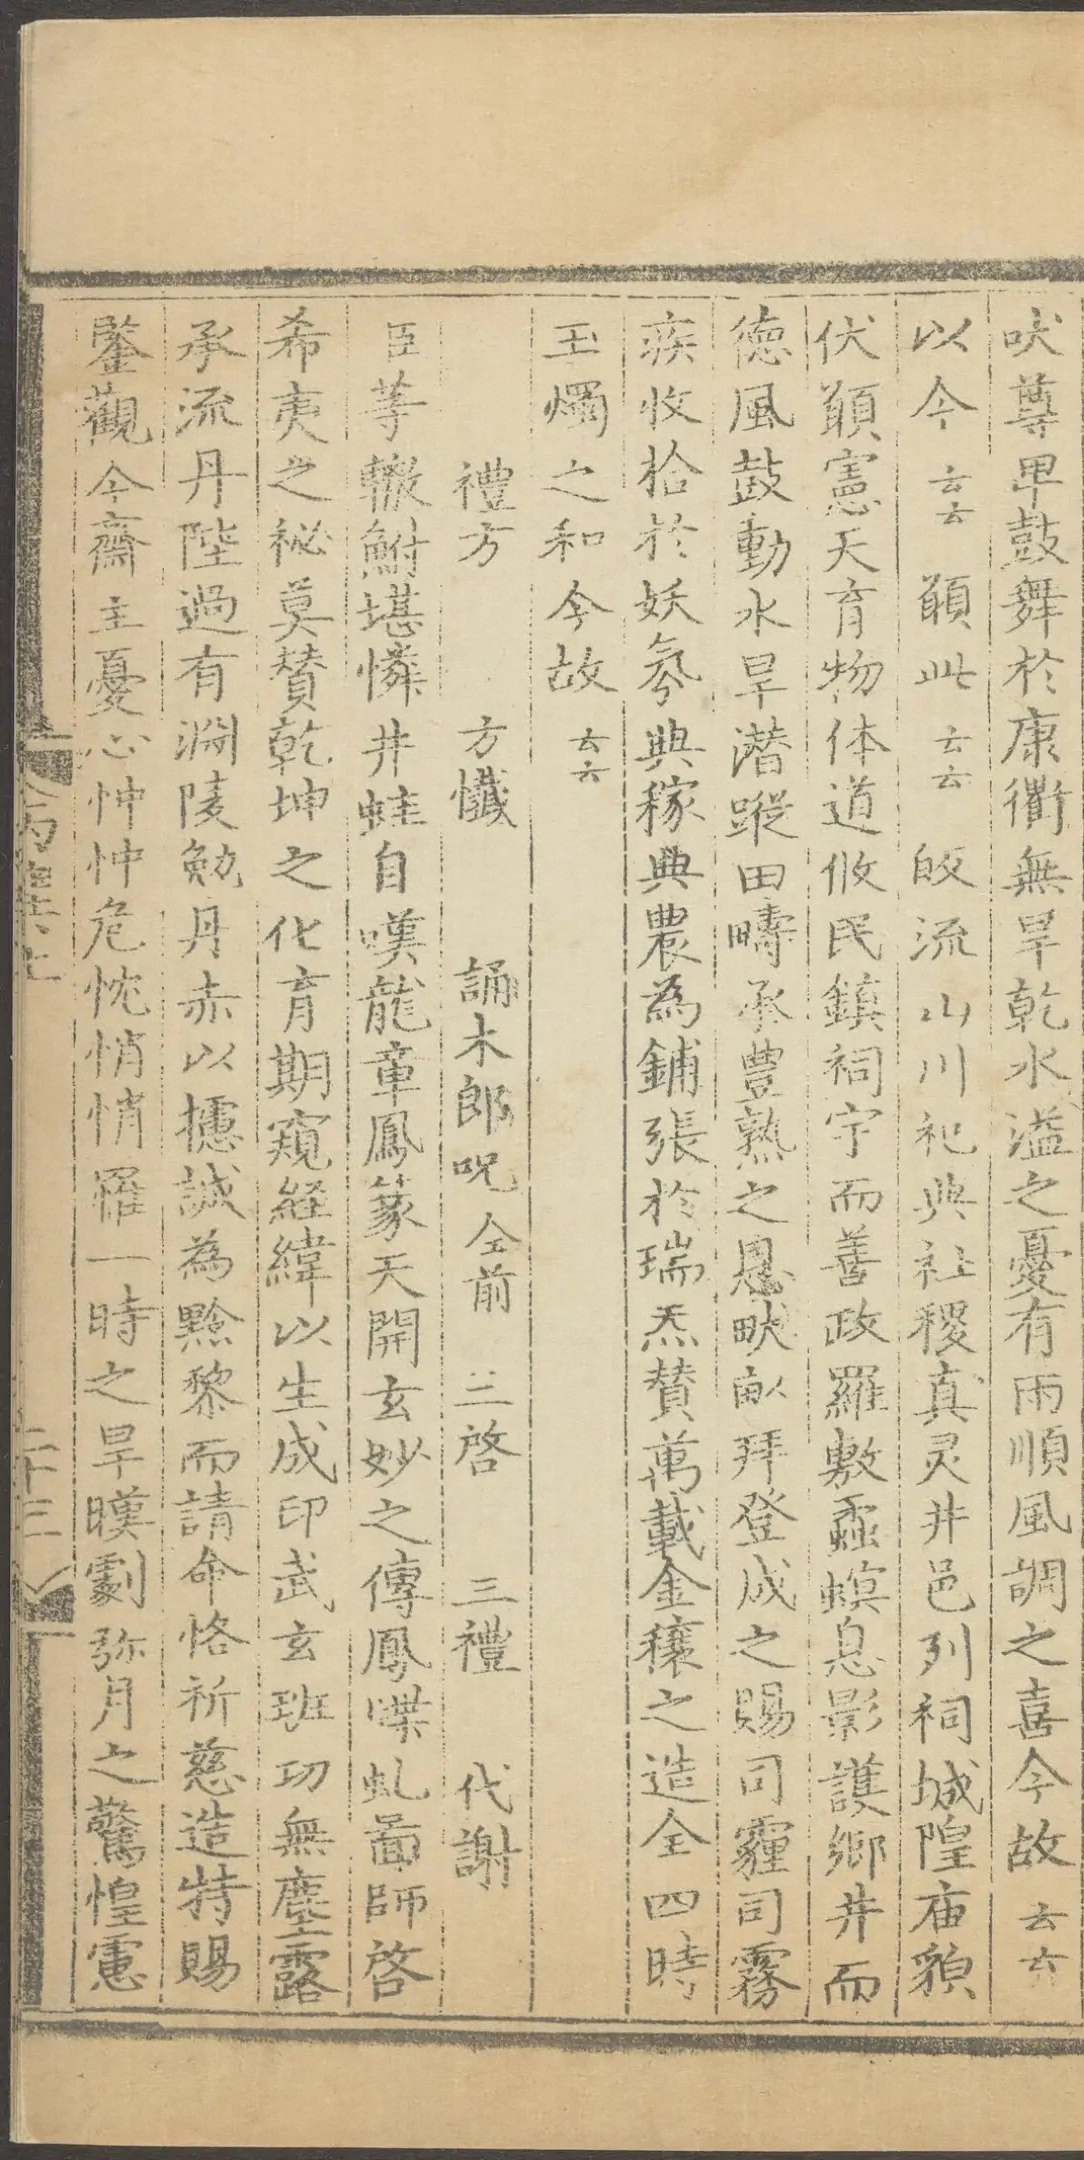 吠尊卑鼓舞於康衢無旱乾水溢之憂有雨順風調之喜今故云云
以今云云願此云云皈流山川祀典社稷真灵井邑列祠城隍庙貌
伏願憲天育物体道攸民鎮祠宇而善政羅敷蝁螟息影護鄉井而
德風鼓動水旱潛蹤田疇承豊熟之恩畎畝拜登成之賜司霾司霧
疾收拾於妖氛典稼典農為鋪張於瑞炁賛萬載金穰之造全四時
玉燭之和今故云云
禮方 方懺 誦木郎呪全前 三啓 三禮 代謝
臣等轍鮒堪憐井蛙自嘆龍章鳳篆天開玄妙之傳鳳噗虬啚師啓
希夷之祕莫賛乾坤之化育期窺経緯以生成印武玄班功無塵露
承流丹陛過有淵陵勉丹赤以攄誠為黔黎而請命恪祈慈造特賜
鑒觀今齋主憂心忡忡危忱悄悄罹一時之旱暵劇弥月之驚惶慮
二十三